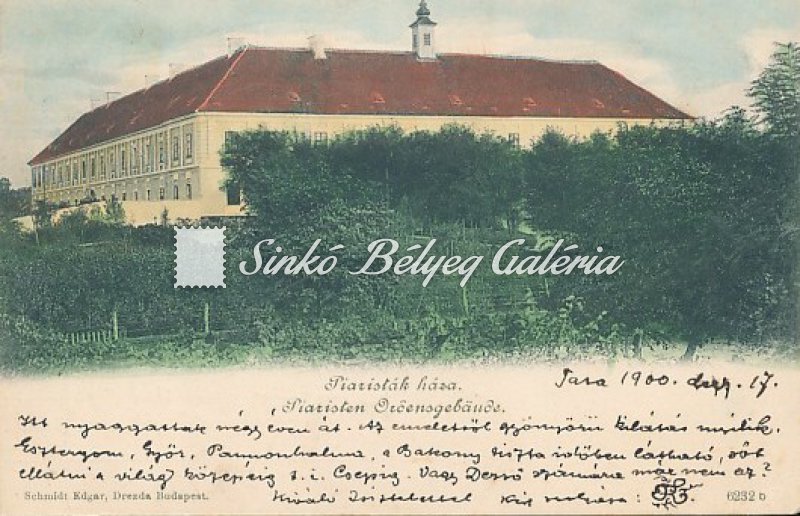 Sinkó Bélyeg Galéria
Piaristák háza.
Piaristen Ordensgebäude.
Tata 1900. dez. 17.
Itt nyaggattak négy éven át. Az emeletről gyönyörű kilátás nyílik.
Esztergom, Győr, Pannonhalma, a Bakony tiszta időben látható, sőt
ellátni a világ közepéig t. i. Csepig. Vagy Dezső számára már nem az?
Kiváló tisztelettel
Schmidt Edgar, Drezda Budapest.
6232 b